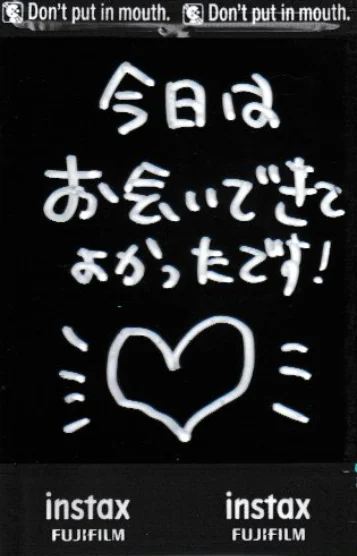 Don't put in mouth. Don't put in mouth.
今日は
お会いできて
よかったです!
instax instax
FUJIFILM FUJIFILM